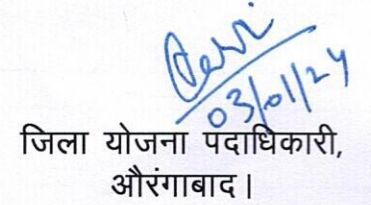 03/01/24
जिला योजना पदाधिकारी,
औरंगाबाद।